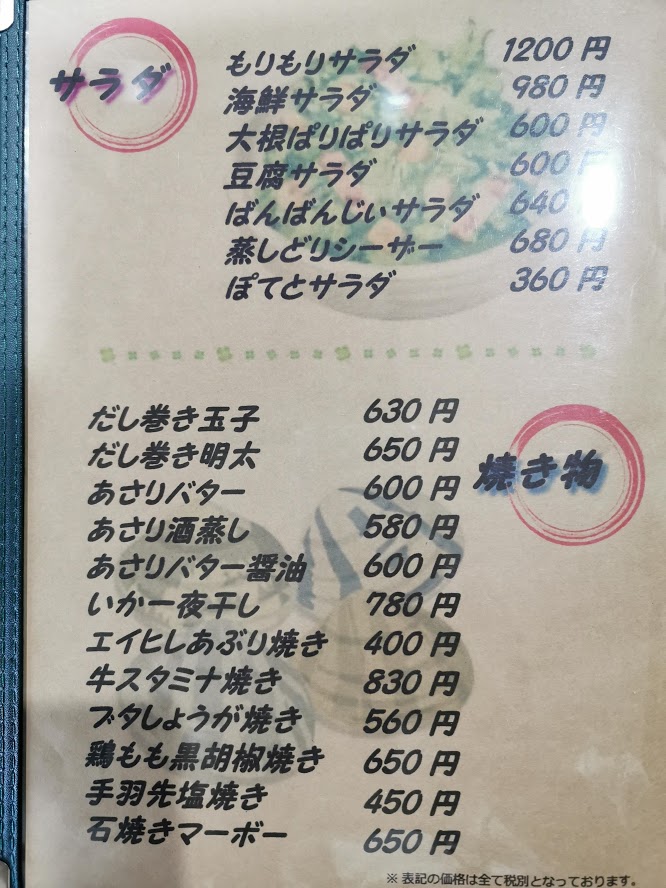 サラダ
もりもりサラダ 1200円
海鮮サラダ 980円
大根ぱりぱりサラダ 600円
豆腐サラダ 600円
ばんばんじぃサラダ 640
蒸しどりシーザー 680円
ぽてとサラダ 360円
焼き物
だし巻き玉子 630円
だし巻き明太 650円
あさりバター 600円
あさり酒蒸し 580円
あさりバター醤油 600円
いか一夜干し 780円
エイヒレあぶり焼き 400円
牛スタミナ焼き 830円
ブタしょうが焼き 560円
鶏もも黒胡椒焼き 650円
手羽先塩焼き 450円
石焼きマーボー 650円
※表記の価格は全て税別となっております。